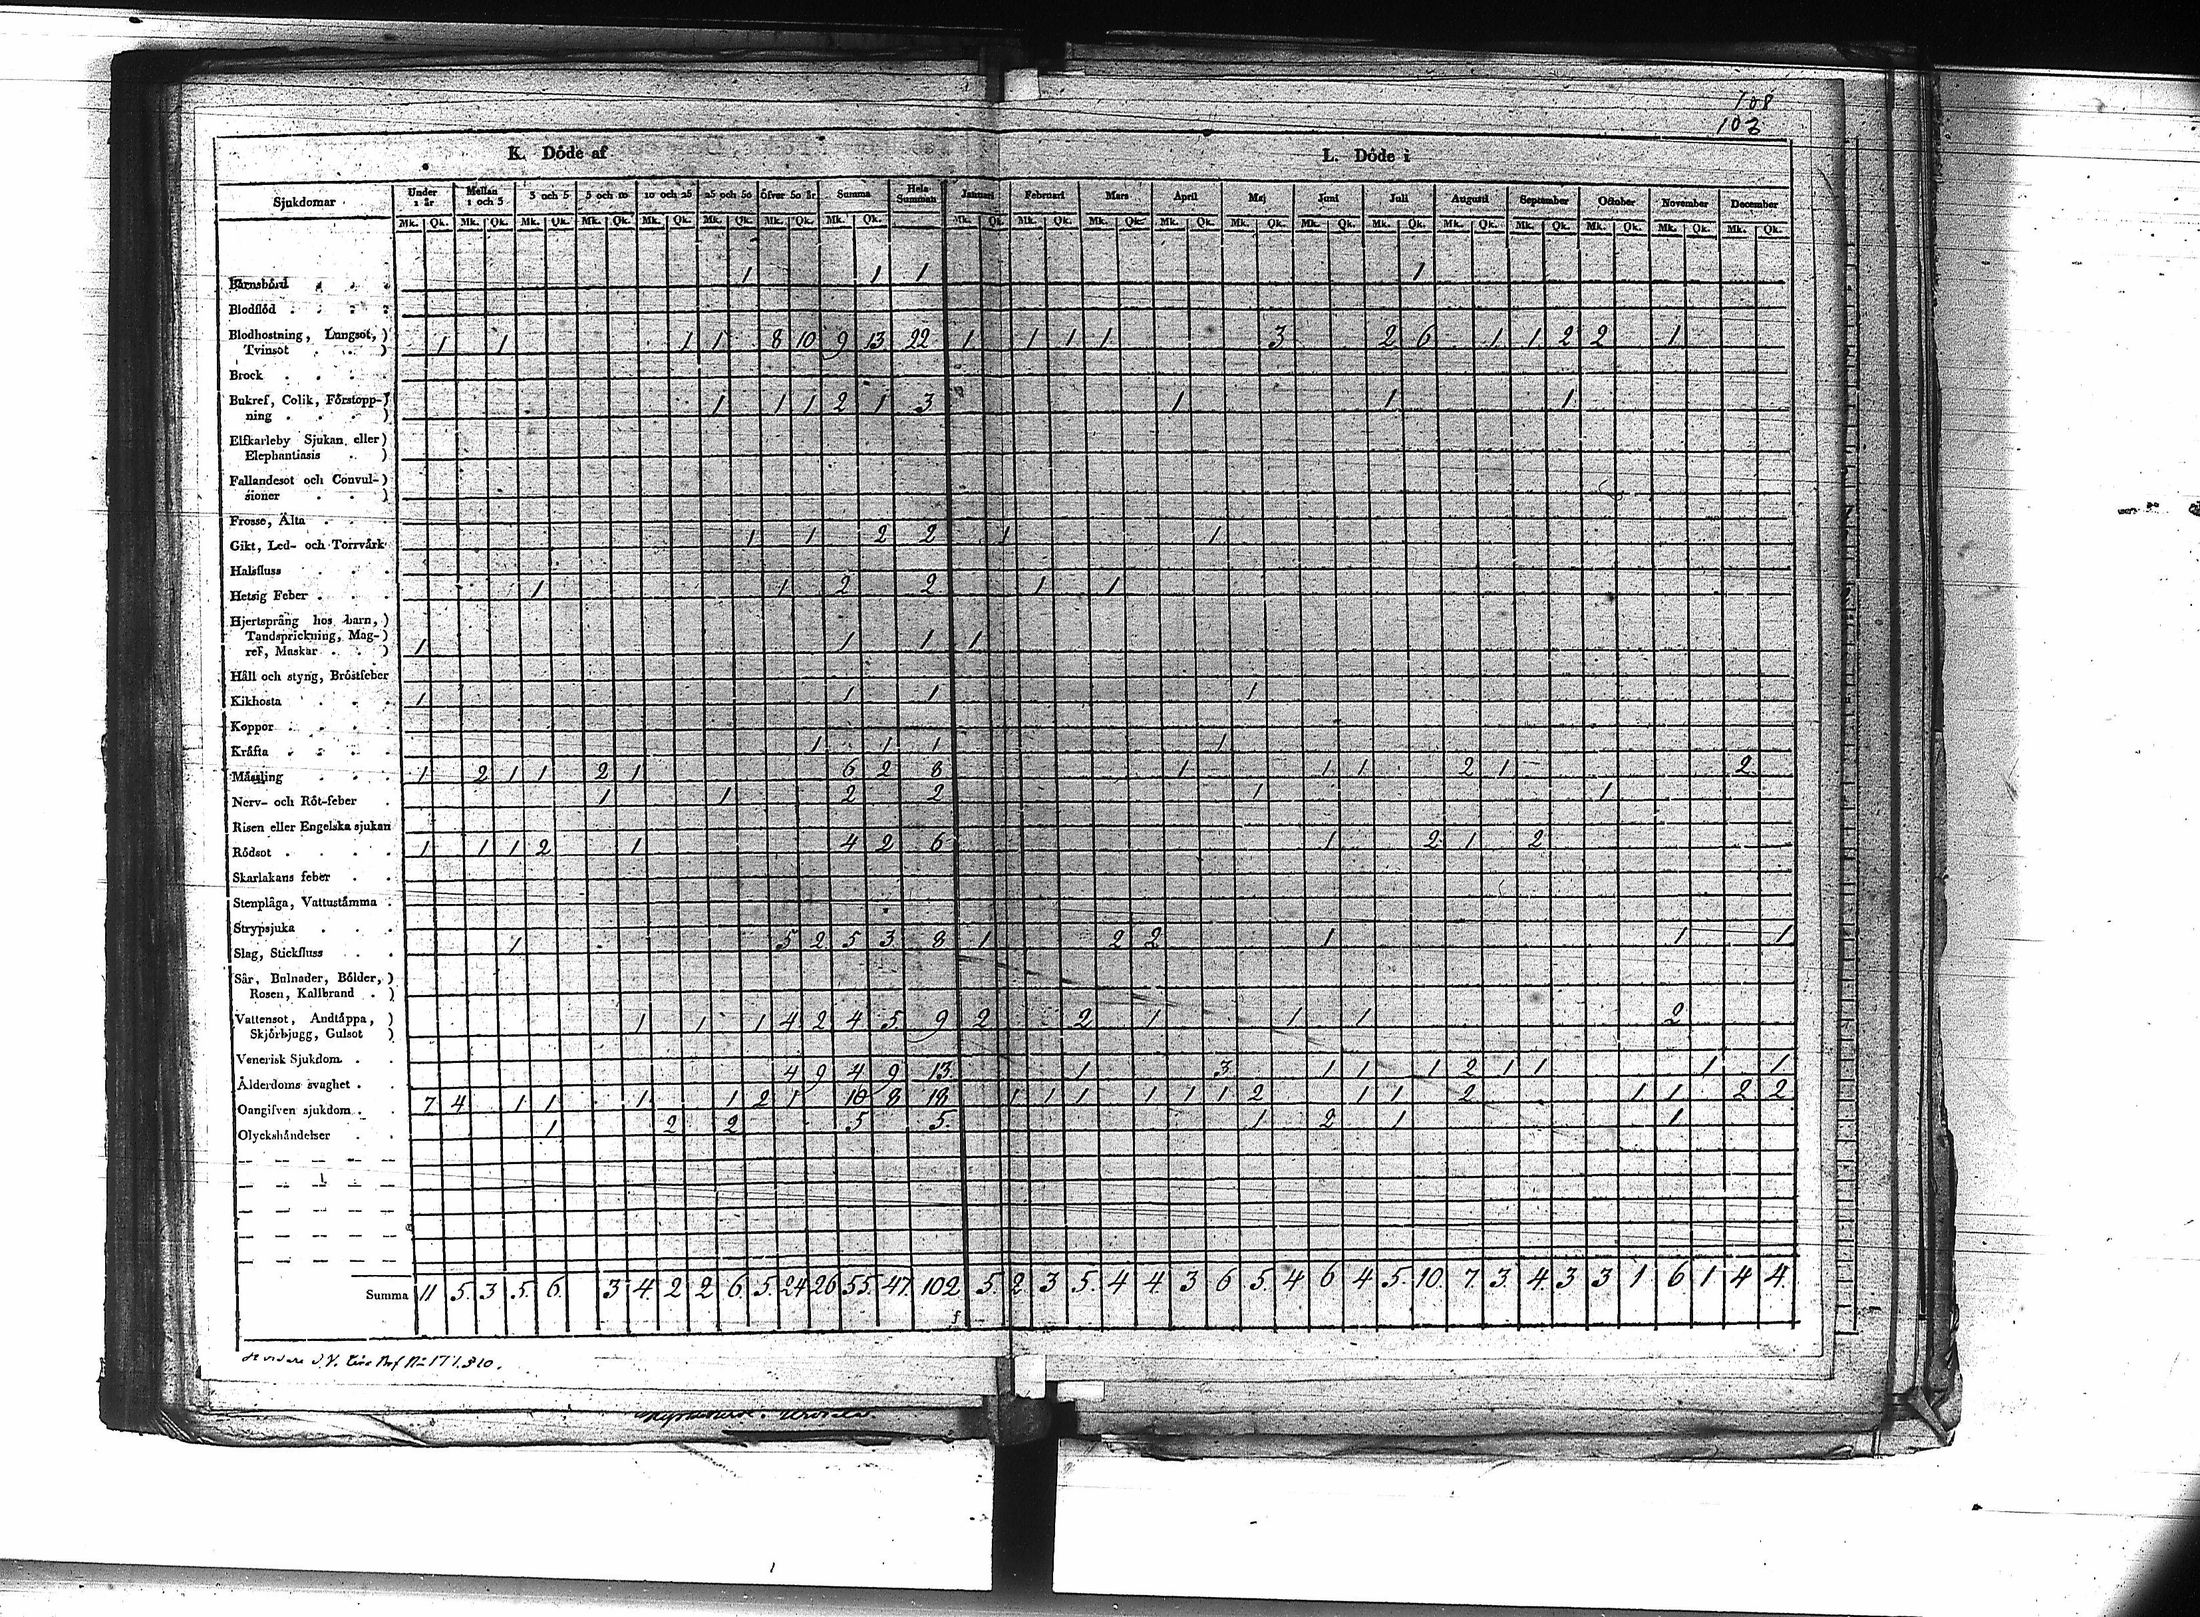 108
103
K. Döde af
L. Döde i
Sjukdomar Under 1 år Mellan 1 och 3 3 och 5 5 och 10 10 och 25 25 och 50 öfver 50 år Summa Hela Summan Januari Februari Mars April Maj Juni Juli Augusti September October November December
Mk. Qk. Mk. Qk. Mk. Qk. Mk. Qk. Mk. Qk. Mk. Qk. Mk. Qk. Mk. Qk. Mk. Qk. Mk. Qk. Mk. Qk. Mk. Qk. Mk. Qk. Mk. Qk. Mk. Qk. Mk. Qk. Mk. Qk. Mk. Qk. Mk. Qk. Mk. Qk.
Barnsbörd 1 1 1 1
Blodflöd
Blodhostning, Lungsot,)
Tvinsot ) 1 1 1 1 8 10 9 13 22 1 1 1 1 3 2 6 1 1 2 2 1
Brock
Bukref, Colik, Förstopp-)
ning ) 1 1 1 2 1 3 1 1 1
Elfkarleby Sjukan eller)
Elephantiasis )
Fallandesot och Convul-)
sioner )
Frosse, Älta
Gikt, Led- och Torrvärk 1 1 2 2 1 1
Halsfluss
Hetsig Feber 1 1 2 2 1 1
Hjertsprång hos barn,)
Tandsprickning, Mag-)
ref, Maskar ) 1 1 1 1
Håll och styng, Bröstfeber
Kikhosta 1 1 1 1
Koppor
Kräfta 1 1 1 1
Mässling 1 2 1 1 2 1 6 2 8 1 1 1 2 1 2
Nerv- och Röt-feber 1 1 2 2 1 1
Risen eller Engelska sjukan
Rödsot 1 1 1 2 1 4 2 6 1 2 1 2
Skarlakans feber
Stenplåga, Vattustämma
Strypsjuka
Slag, Stickfluss 1 5 2 5 3 8 1 2 2 1 1 1
Sår, Bulnader, Bölder,)
Rosen, Kallbrand )
Vattensot, Andtäppa, )
Skjörbjugg, Gulsot ) 1 1 1 4 2 4 5 9 2 2 1 1 1 2
Venerisk Sjukdom
Ålderdoms svaghet 4 9 4 9 13 1 3 1 1 1 2 1 1 1 1
Oangifven sjukdom 7 4 1 1 1 1 2 1 10 8 18 1 1 1 1 1 1 2 1 1 2 1 1 2 2
Olyckshändelser 1 2 2 5 5 1 2 1 1
Summa 11 5 3 5 6 3 4 2 2 6 5 24 26 55 47 102 5 2 3 5 4 4 3 6 5 4 6 4 5 10 7 3 4 3 3 1 6 1 4 4